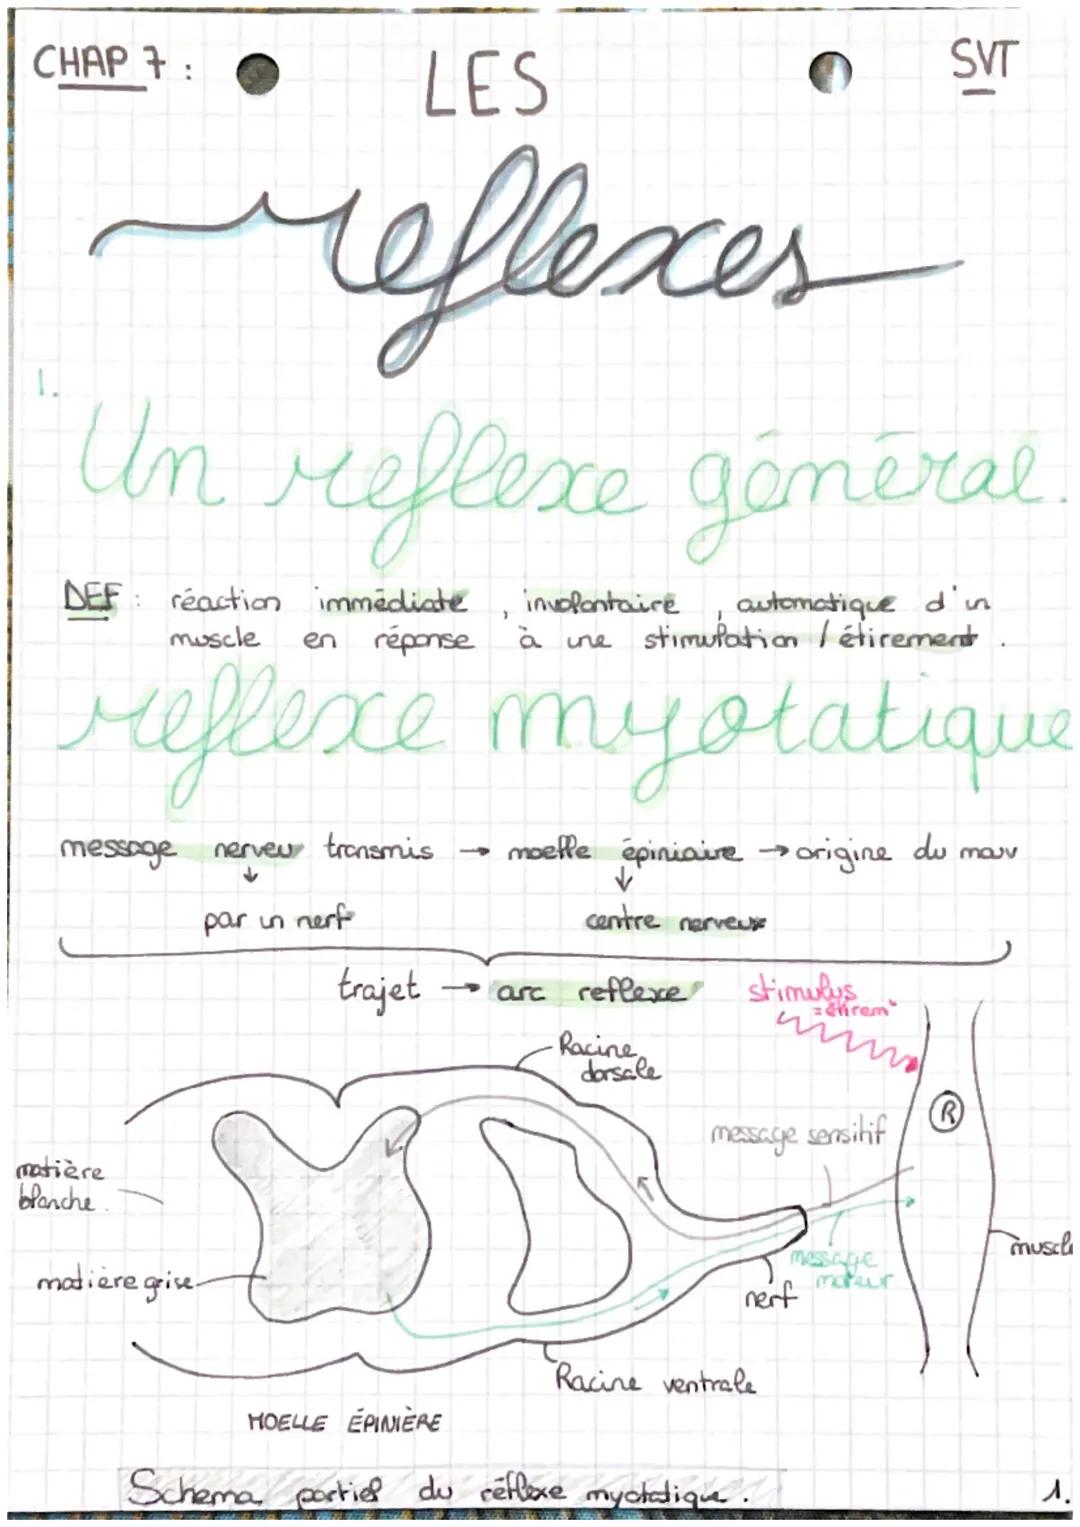 CHAP 7 :
LES
SVT
reflexes
1.
Un reflexe général.
DEF : réaction immédiate , involontaire , automatique d'un
muscle en réponse à une stimulation / étirement .
reflexe myotatique
message nerveu transmis → moelle épiniaire → origine du mouv
↓ ↓
par un nerf centre nerveux
trajet → arc reflexe
stimulus
= étirem
Racine
dorsale
R
message sensitif
matière
blanche.
muscle
message
moteur
matière grise
nerf
Racine ventrale
MOELLE ÉPINIÈRE
Schema partiel du réflexe myotatique .
1.